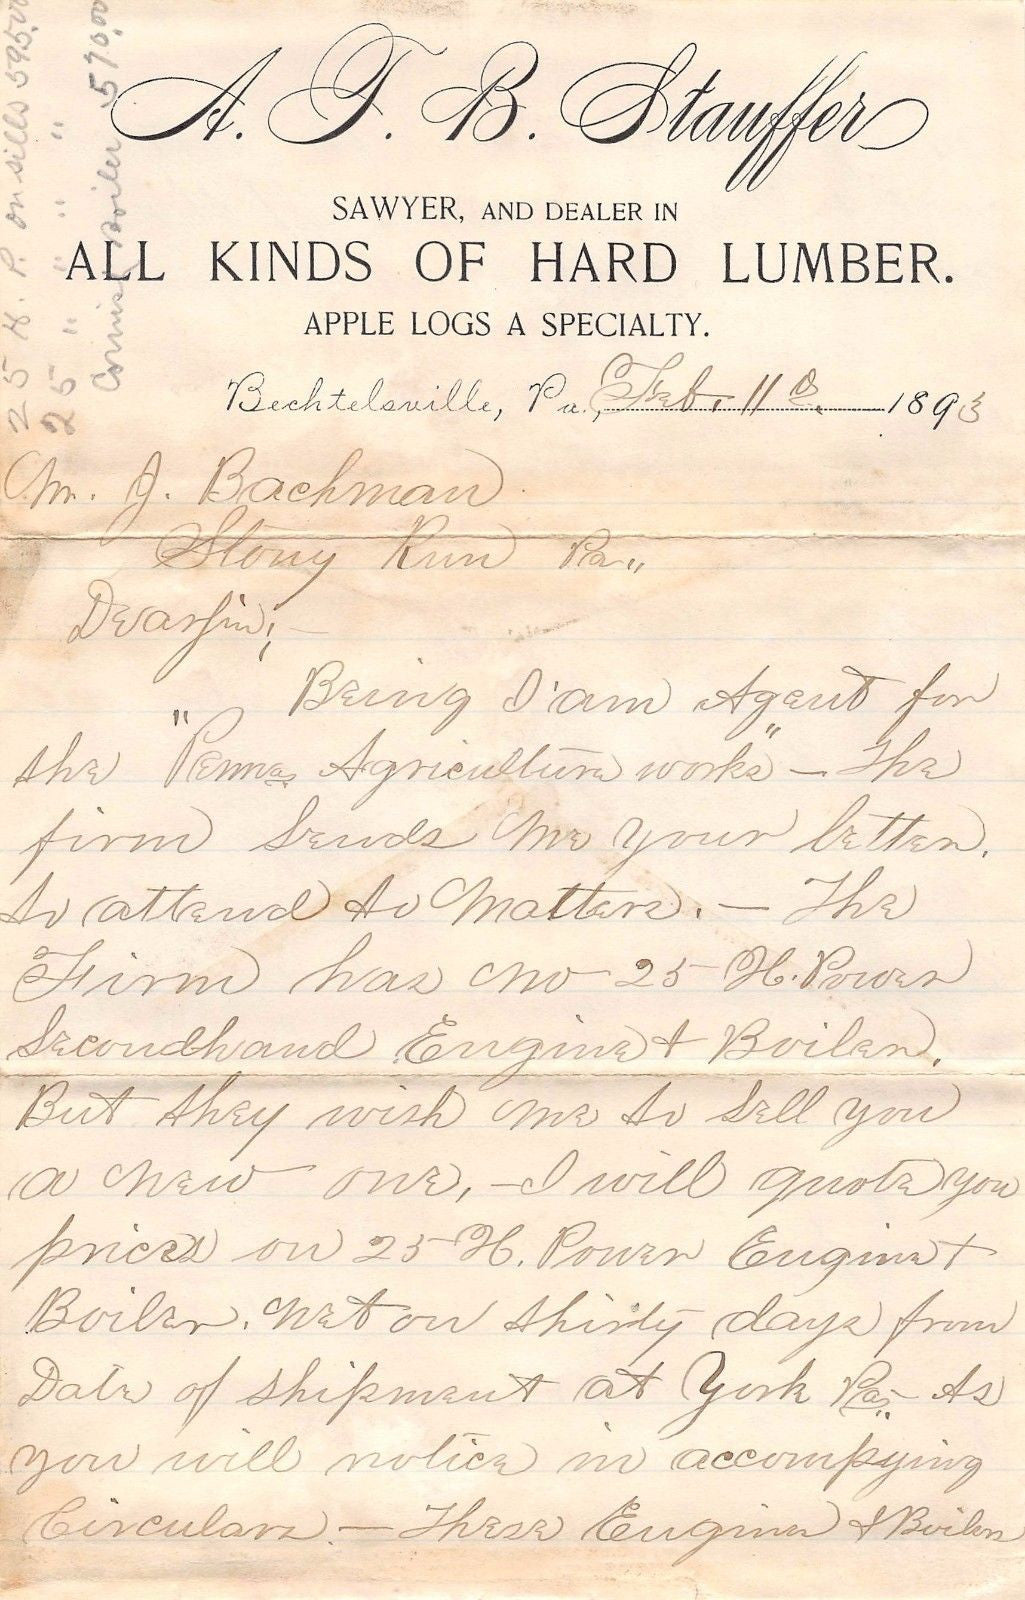 25 H. P. on sills 595.00
25 " " " "
Cornish Boiler 570.00
A. F. B. Stauffer
SAWYER, AND DEALER IN
ALL KINDS OF HARD LUMBER.
APPLE LOGS A SPECIALTY.
Bechtelsville, Pa., Feb. 11th 1893
Mr. J. Bachman
Stony Run Pa.,
Dear Sir;—
Being I'am Agent for
the "Penna Agriculture works" — The
firm sends me your letter.
to attend to Matters. — The
Firm has no 25 H. Power
Secondhand Engine & Boiler.
But they wish me to sell you
a new one, — I will quote you
prices on 25 H. Power Engine &
Boiler. Net on thirty days from
Date of shipment at York Pa— As
you will notice in accompying
Circulars — These Engine & Boiler